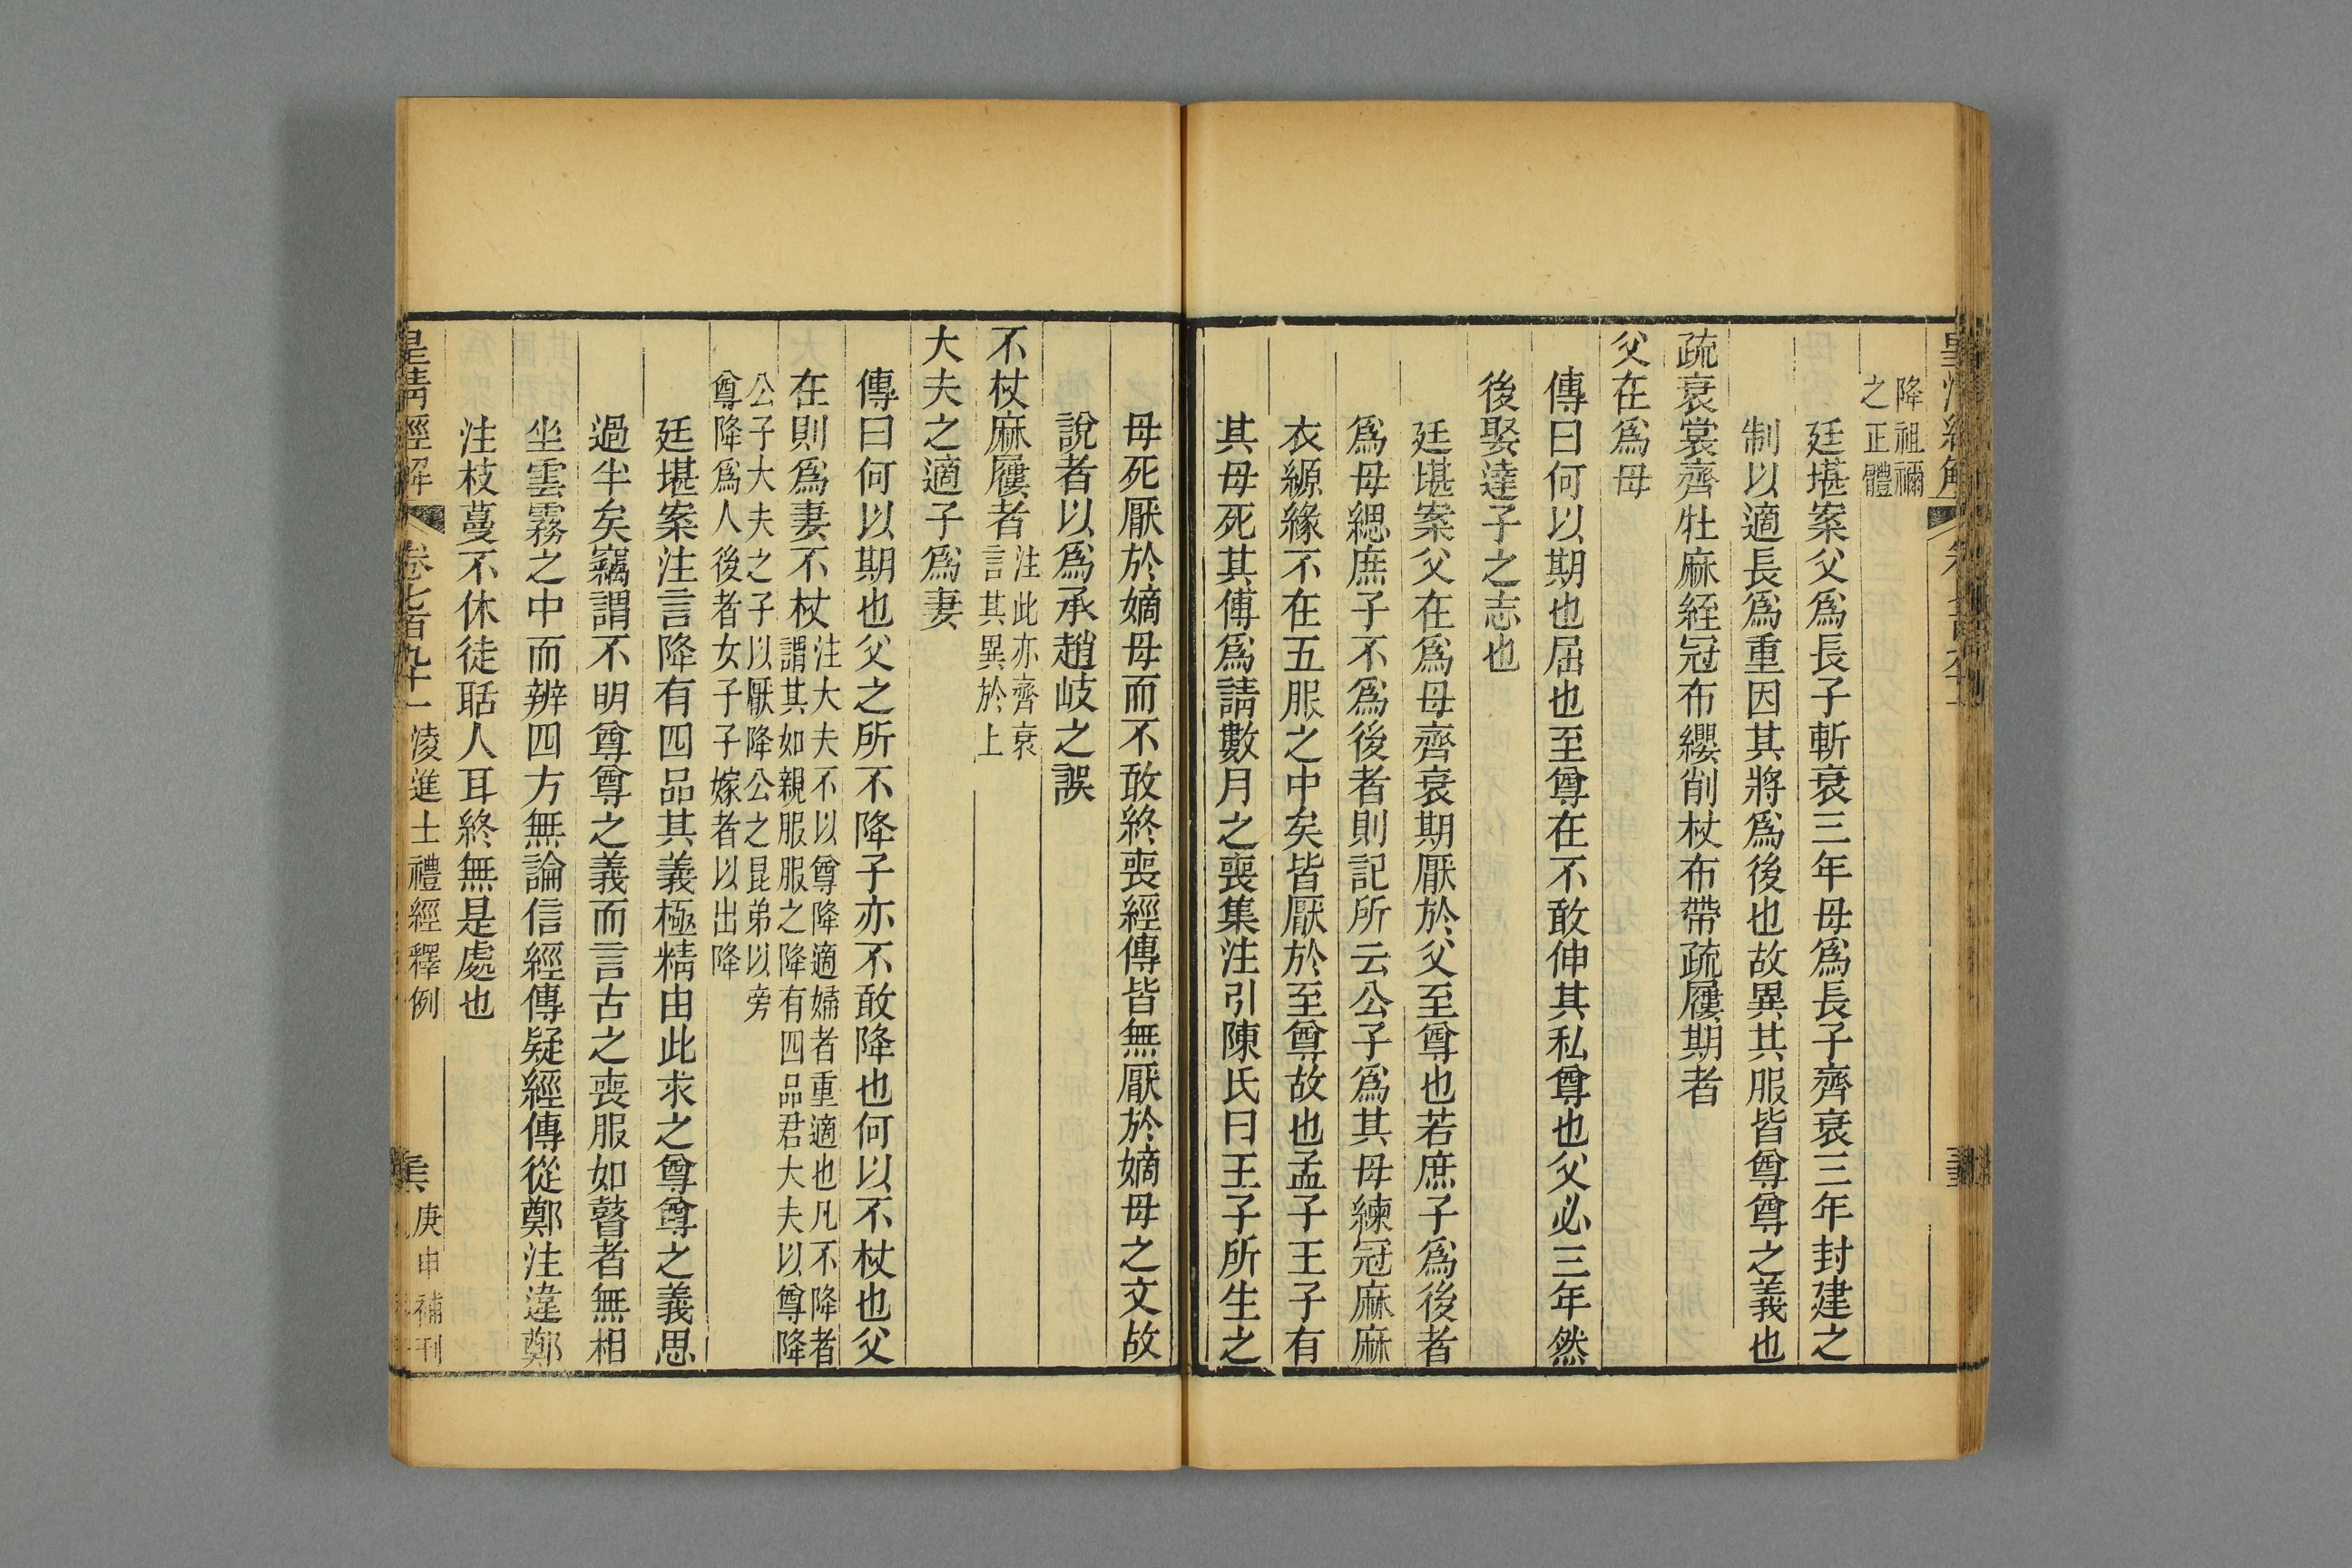 降祖禰
之正體
廷堪案父爲長子斬衰三年母爲長子齊衰三年封建之
制以適長爲重因其將爲後也故異其服皆尊尊之義也
疏衰裳齊牡麻絰冠布纓削杖布帶疏屨期者
父在爲母
傳曰何以期也屈也至尊在不敢伸其私尊也父必三年然
後娶達子之志也
廷堪案父在爲母齊衰期厭於父至尊也若庶子爲後者
爲母緦庶子不爲後者則記所云公子爲其母練冠麻麻
衣縓緣不在五服之中矣皆厭於至尊故也孟子王子有
其母死其傅爲請數月之喪集注引陳氏曰王子所生之
母死厭於嫡母而不敢終喪經傳皆無厭於嫡母之文故
說者以爲承趙岐之誤
不杖麻屨者注此亦齊衰言其異於上
大夫之適子爲妻
傳曰何以期也父之所不降子亦不敢降也何以不杖也父
在則爲妻不杖注大夫不以尊降適婦者重適也凡不降者謂其如親服服之降有四品君大夫以尊降
公子大夫之子以厭降公之昆弟以旁
尊降爲人後者女子子嫁者以出降
廷堪案注言降有四品其義極精由此求之尊尊之義思
過半矣竊謂不明尊尊之義而言古之喪服如瞽者無相
坐雲霧之中而辨四方無論信經傳疑經傳從鄭注違鄭
注枝蔓不休徒聒人耳終無是處也
皇清經解 卷七百九十一 淩進士禮經釋例 庚申補刊